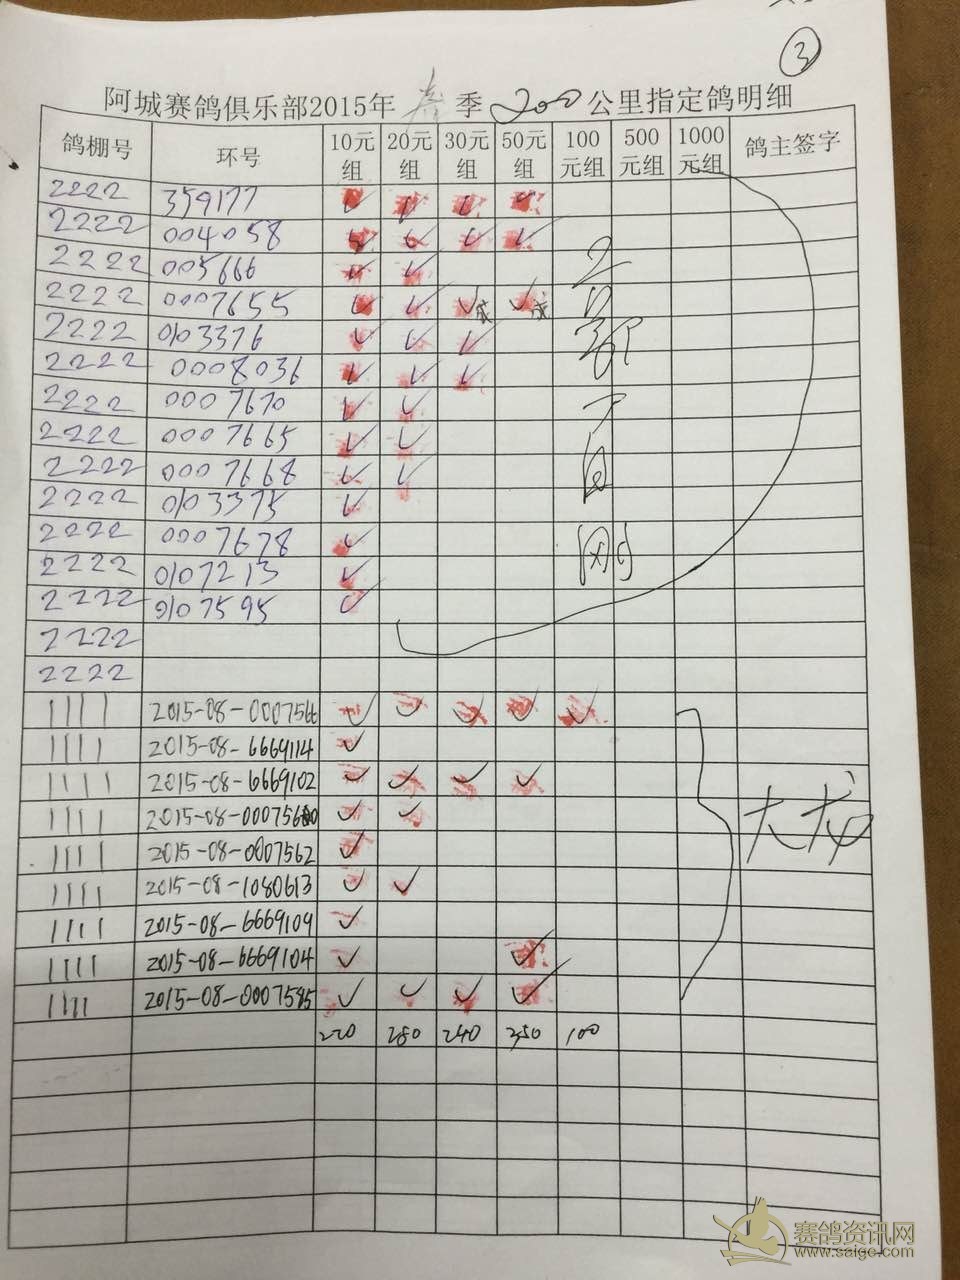 ③
阿城赛鸽俱乐部2015年 春 季 200 公里指定鸽明细
鸽棚号 环号 10元组 20元组 30元组 50元组 100元组 500元组 1000元组 鸽主签字
2222 359177 ✓ ✓ ✓ ✓
2222 004058 ✓ ✓ ✓ ✓
2222 005666 ✓ ✓
2222 0007655 ✓ ✓ ✓成 ✓成
2222 0103376 ✓ ✓ ✓
2222 0008036 ✓ ✓ ✓
2222 0007670 ✓ ✓
2222 0007665 ✓ ✓
2222 0007668 ✓ ✓
2222 0103375 ✓
2222 0007678 ✓
2222 0107213 ✓
2222 0107595 ✓
2222
2222
1111 2015-08-0007566 ✓ ✓ ✓ ✓ ✓
1111 2015-08-6669114 ✓
1111 2015-08-6669102 ✓ ✓ ✓ ✓
1111 ✓ ✓
1111 2015-08-0007562 ✓
1111 2015-08-1080613 ✓ ✓
1111 2015-08-6669109 ✓
1111 2015-08-6669104 ✓ ✓
1111 2015-08-0007585 ✓ ✓ ✓ ✓
大龙
220 280 240 350 100
赛鸽资讯网
www.saige.com